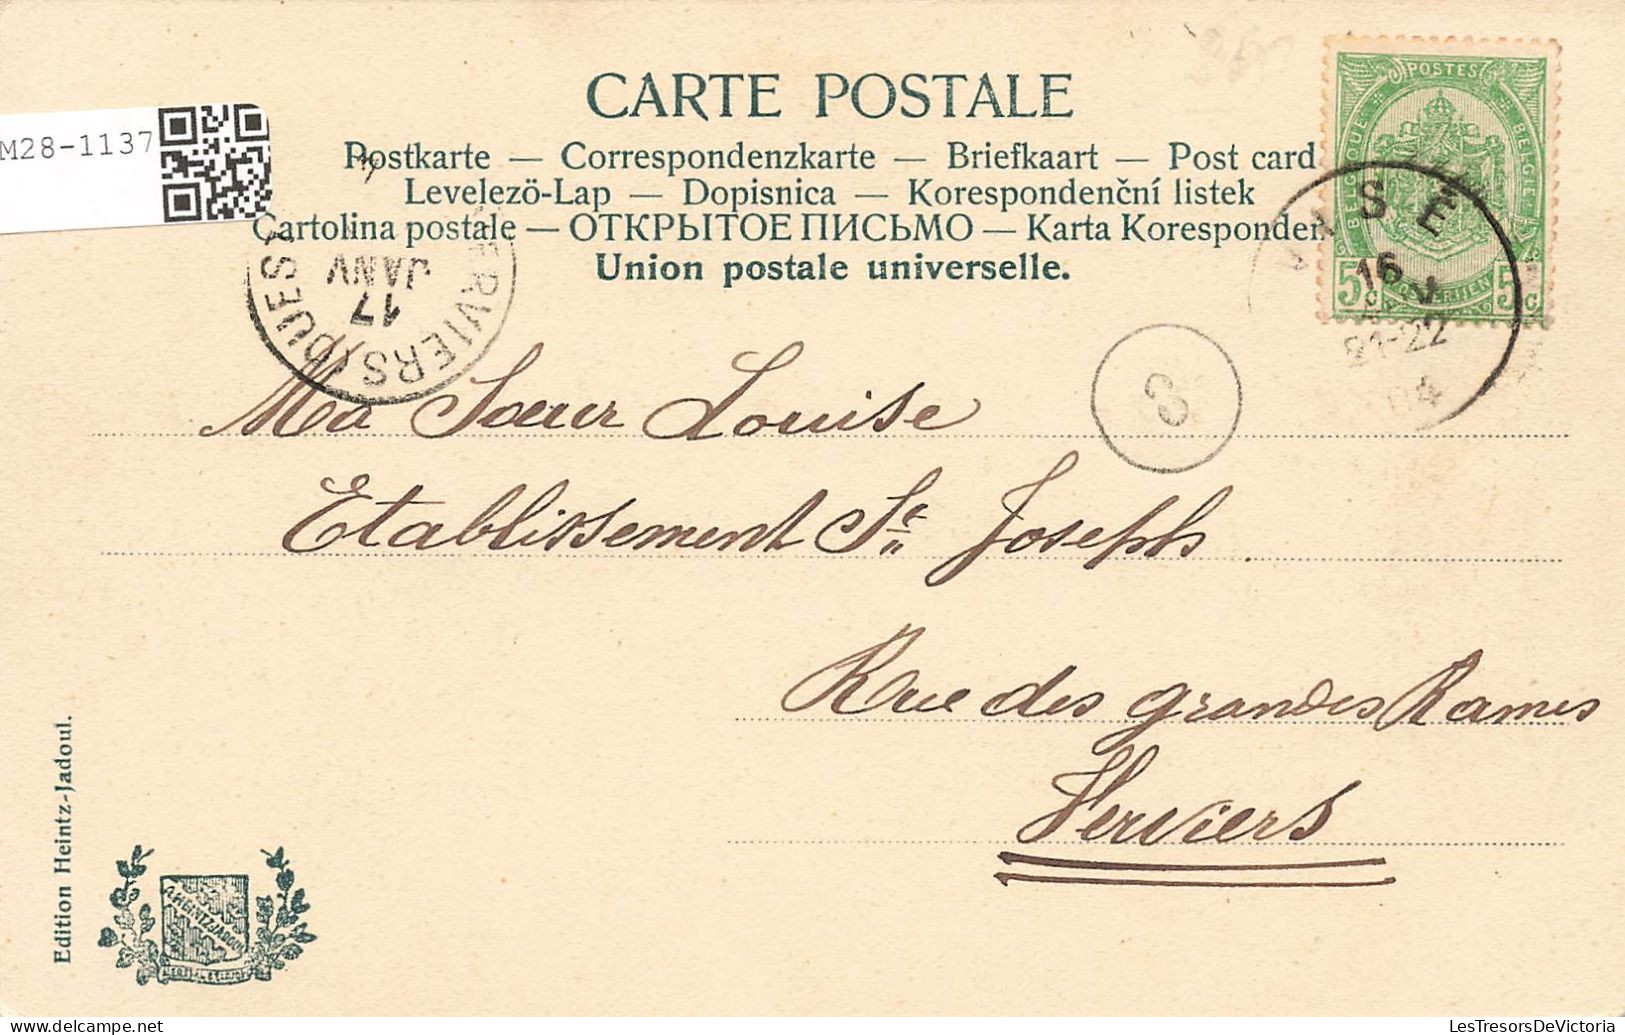 CARTE POSTALE
Postkarte — Correspondenzkarte — Briefkaart — Post card
Levelezö-Lap — Dopisnica — Korespondenční listek
Cartolina postale — ОТКРЫТОЕ ПИСЬМО — Karta Koresponden
Union postale universelle.
M28-1137
POSTES
BELGIQUE
BELGIE
5c 5c
VISÉ
16
21-22
04
VERVIERS (OUEST)
17
JANV
3
Ma Sœur Louise
Etablissement St Joseph
Rue des grandes Rames
Verviers
Edition Heintz-Jadoul.
A. HEINTZ-JADOUL
LesTresorsDeVictoria